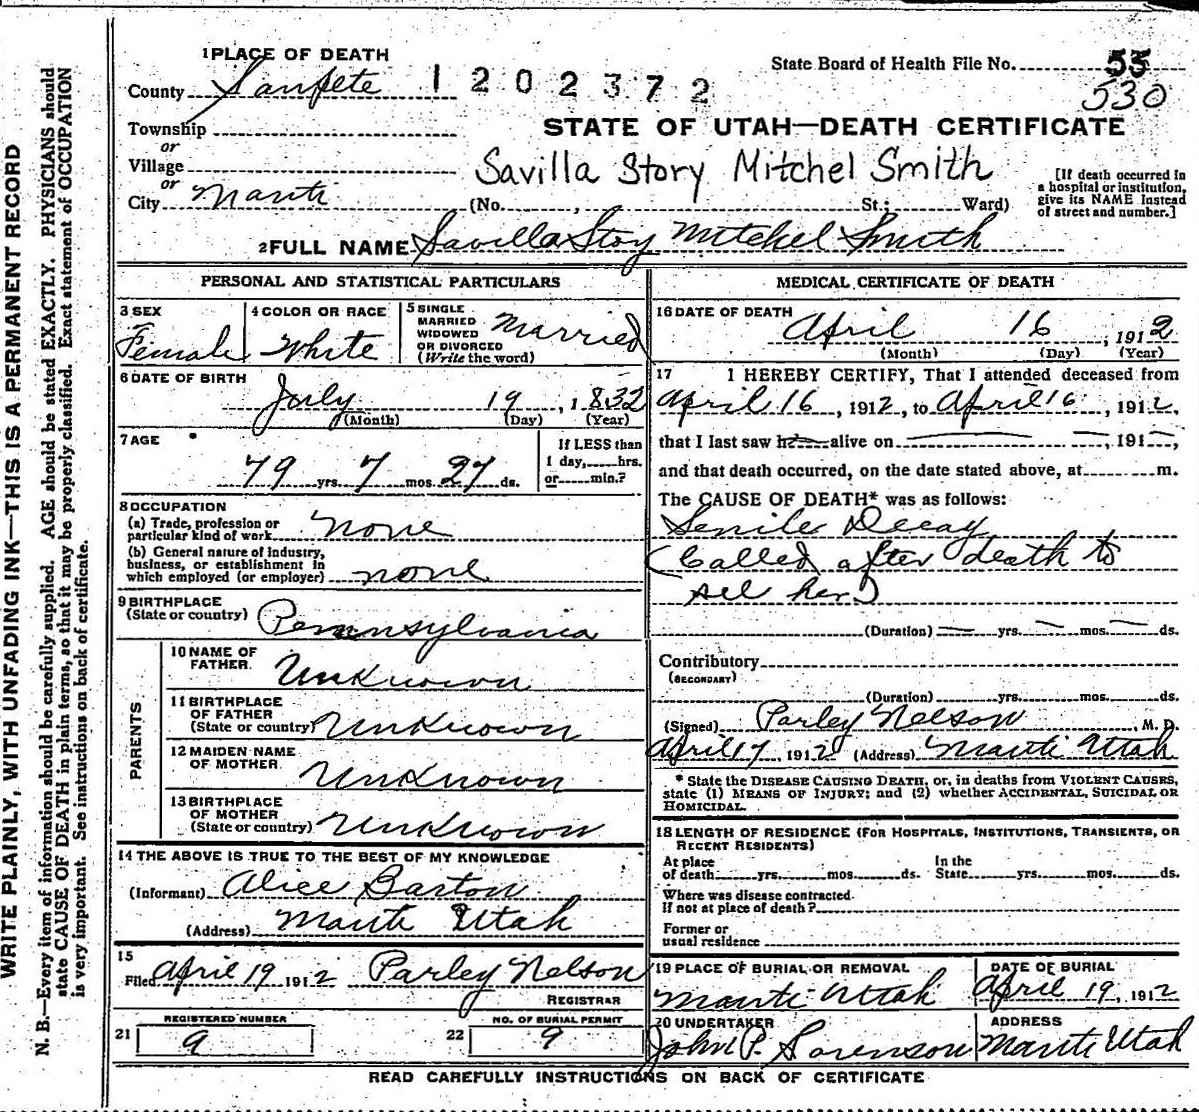 WRITE PLAINLY, WITH UNFADING INK—THIS IS A PERMANENT RECORD
N. B.—Every item of information should be carefully supplied. AGE should be stated EXACTLY. PHYSICIANS should
state CAUSE OF DEATH in plain terms, so that it may be properly classified. Exact statement of OCCUPATION
is very important. See instructions on back of certificate.
1 PLACE OF DEATH
State Board of Health File No. 55
530
County Sanpete 1202372
STATE OF UTAH—DEATH CERTIFICATE
Township
or
Village
Savilla Story Mitchel Smith
or
City Manti (No. , St.; Ward)
[If death occurred in
a hospital or institution,
give its NAME instead
of street and number.]
2 FULL NAME Savilla Stoy Mitchel Smith
PERSONAL AND STATISTICAL PARTICULARS
3 SEX
Female
4 COLOR OR RACE
White
5 SINGLE
MARRIED
WIDOWED
OR DIVORCED
(Write the word)
Married
6 DATE OF BIRTH
July 19, 1832
(Month) (Day) (Year)
7 AGE
79 yrs. 7 mos. 27 ds.
If LESS than
1 day, hrs.
or min.?
8 OCCUPATION
(a) Trade, profession or
particular kind of work none
(b) General nature of industry,
business, or establishment in
which employed (or employer) none
9 BIRTHPLACE
(State or country) Pennsylvania
PARENTS
10 NAME OF
FATHER Unknown
11 BIRTHPLACE
OF FATHER
(State or country) Unknown
12 MAIDEN NAME
OF MOTHER Unknown
13 BIRTHPLACE
OF MOTHER
(State or country) Unknown
14 THE ABOVE IS TRUE TO THE BEST OF MY KNOWLEDGE
(Informant) Alice Barton
(Address) Manti Utah
15
Filed April 19 1912 Parley Nelson
REGISTRAR
REGISTERED NUMBER
21 9
NO. OF BURIAL PERMIT
22 9
MEDICAL CERTIFICATE OF DEATH
16 DATE OF DEATH
April 16, 1912
(Month) (Day) (Year)
17 I HEREBY CERTIFY, That I attended deceased from
April 16, 1912, to April 16, 1912,
that I last saw h alive on , 191 ,
and that death occurred, on the date stated above, at m.
The CAUSE OF DEATH* was as follows:
Senile Decay
(Called after death to
see her)
(Duration) yrs. mos. ds.
Contributory
(SECONDARY)
(Duration) yrs. mos. ds.
(Signed) Parley Nelson M. D.
April 17, 1912 (Address) Manti Utah
* State the DISEASE CAUSING DEATH, or, in deaths from VIOLENT CAUSES,
state (1) MEANS OF INJURY; and (2) whether ACCIDENTAL, SUICIDAL OR
HOMICIDAL.
18 LENGTH OF RESIDENCE (FOR HOSPITALS, INSTITUTIONS, TRANSIENTS, OR
RECENT RESIDENTS)
At place
of death yrs. mos. ds.
In the
State yrs. mos. ds.
Where was disease contracted.
If not at place of death?
Former or
usual residence
19 PLACE OF BURIAL OR REMOVAL
Manti Utah
DATE OF BURIAL
April 19, 1912
20 UNDERTAKER
John P. Sorenson
ADDRESS
Manti Utah
READ CAREFULLY INSTRUCTIONS ON BACK OF CERTIFICATE